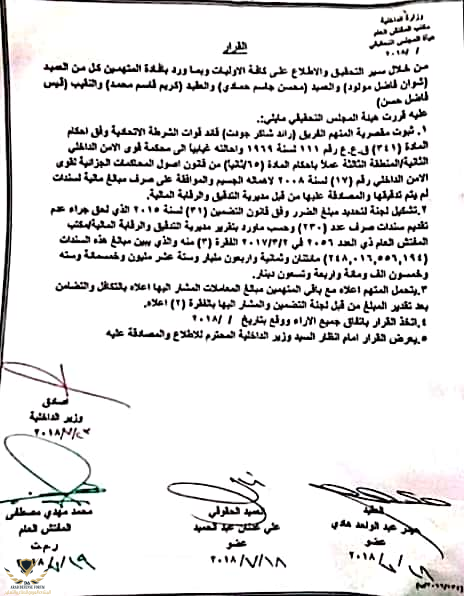 وزارة الداخلية
مكتب المفتش العام
هيأة المجلس التحقيقي
/ / ٢٠١٨
القرار
من خلال سير التحقيق والاطلاع على كافة الاوليات وبما ورد بإفادة المتهمين كل من العميد
(شوان فاضل مولود) والعميد (محسن جاسم حمادي) والعقيد (كريم قاسم محمد) والنقيب (قيس
فاضل حسن)
عليه قررت هيئة المجلس التحقيقي مايلي:
١. ثبوت مقصرية المتهم الفريق (رائد شاكر جودت) قائد قوات الشرطة الاتحادية وفق احكام
المادة (٣٤١) ق.ع.ع رقم ١١١ لسنة ١٩٦٩ واحالته غيابيا الى محكمة قوى الامن الداخلي
الثانية/المنطقة الثالثة عملا باحكام المادة (٦٥/ثانيا) من قانون اصول المحاكمات الجزائية لقوى
الامن الداخلي رقم (١٧) لسنة ٢٠٠٨ لاهماله الجسيم والموافقة على صرف مبالغ مالية لسندات
لم يتم تدقيقها والمصادقة عليها من قبل مديرية التدقيق والرقابة المالية.
٢. تشكيل لجنة لتحديد مبلغ الضرر وفق قانون التضمين (٣١) لسنة ٢٠١٥ الذي لحق جراء عدم
تقديم سندات صرف عدد (٢٣٠) وحسب ماورد بتقرير مديرية التدقيق والرقابة المالية/مكتب
المفتش العام ذي العدد ٢٠٥٦ في ٢٠١٧/٣/٢ الفقرة (٣) منه والذي يبين مبالغ هذه السندات
(٢٤٨,٠١٦,٥٥٦,١٩٤) مائتان وثمانية واربعون مليار وستة عشر مليون وخمسمائة وستة
وخمسون الف ومائة واربعة وتسعون دينار.
٣. يتحمل المتهم اعلاه مع باقي المتهمين مبالغ المعاملات المشار اليها اعلاه بالتكافل والتضامن
بعد تقدير المبلغ من قبل لجنة التضمين والمشار اليها بالفقرة (٢) اعلاه.
٤. اتخذ القرار باتفاق جميع الاراء ووقع بتاريخ / / ٢٠١٨
٥. يعرض القرار امام انظار السيد وزير الداخلية المحترم للاطلاع والمصادقة عليه
أصادق
وزير الداخلية
العقيد
عبد الواحد هادي
عضو
العميد الحقوقي
علي عبد الحميد
عضو
٢٠١٨/٧/١٨
محمد مهدي مصطفى
المفتش العام
ر.م.ت